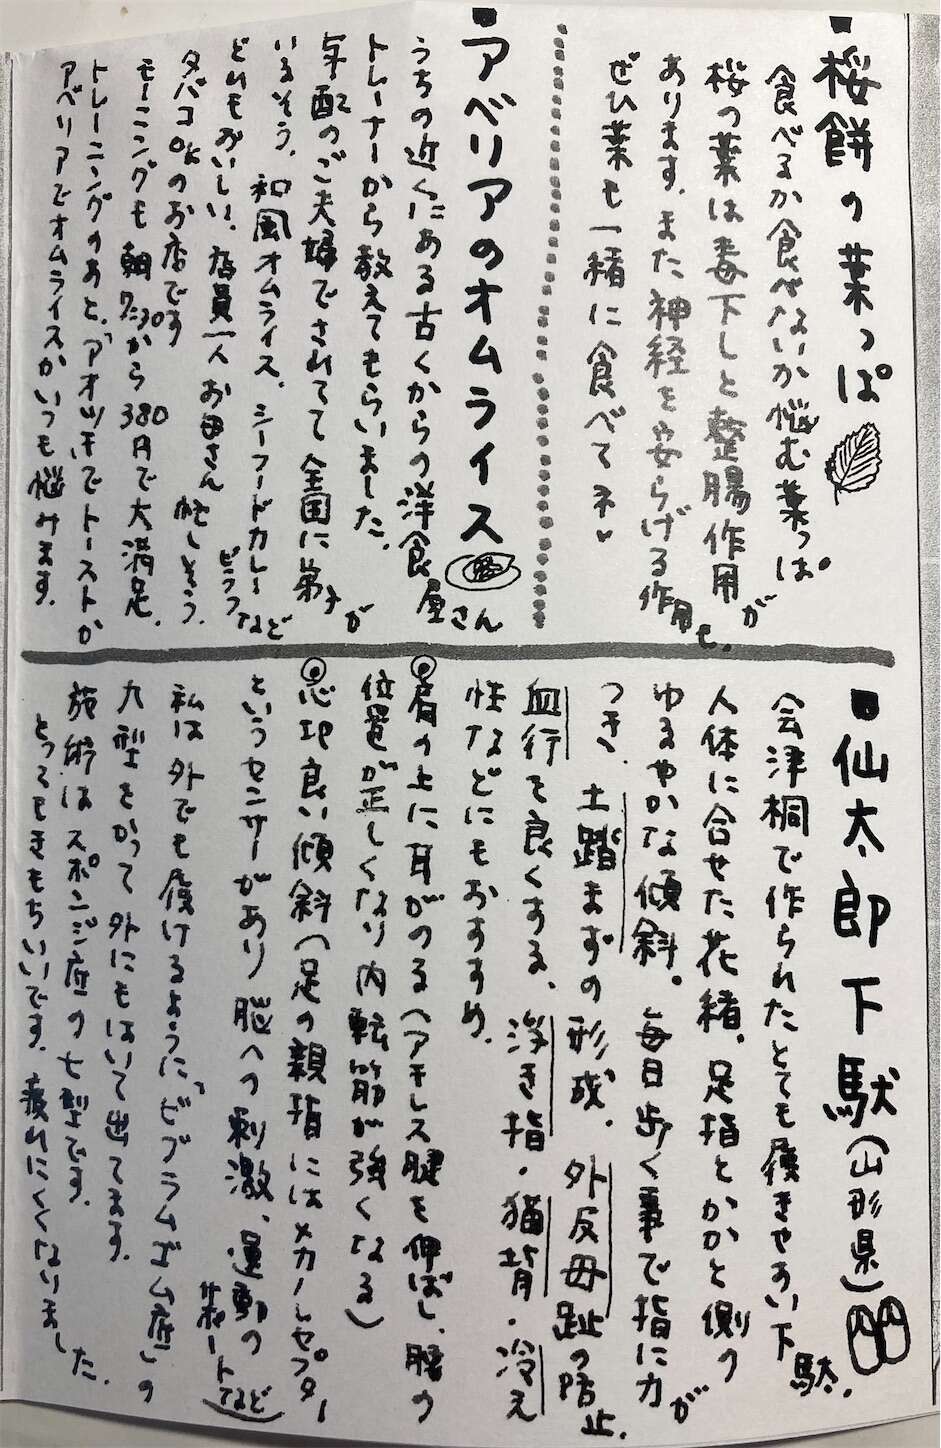 ■桜餅の葉っぱ
食べるか食べないか悩む葉っぱ
桜の葉は毒下しと整腸作用が
あります。また神経を安らげる作用も。
ぜひ葉も一緒に食べてネ
■アベリアのオムライス
うちの近くにある古くからの洋食屋さん
トレーナーから教えてもらいました。
年配のご夫婦でされてて全国に弟子が
いるそう。和風オムライス、シーフードカレー ピラフなど
どれもおいしい。店員一人お母さん忙しそう。
タバコOKのお店です
モーニングも朝7:30から380円で大満足。
トレーニングのあと、「アオツキ」でトーストか
アベリアでオムライスかいつも悩みます。
■仙太郎下駄(山形県)
会津桐で作られたとても履きやすい下駄。
人体に合せた花緒。足指とかかと側の
ゆるやかな傾斜。毎日歩く事で指に力が
つき、土踏まずの形成、外反母趾の防止。
血行を良くする、浮き指・猫背・冷え
性などにもおすすめ。
肩の上に耳がのる(アキレス腱を伸ばし、腰の
位置が正しくなり内転筋が強くなる)
心地良い傾斜(足の親指にはメカノレセプター
というセンサーがあり脳への刺激、運動のサポートなど)
私は外でも履けるように、「ビブラムゴム底」の
九型をかって外にもはいて出てます。
施術はスポンジ底の七型です。
とってもきもちいいです。疲れにくくなりました。